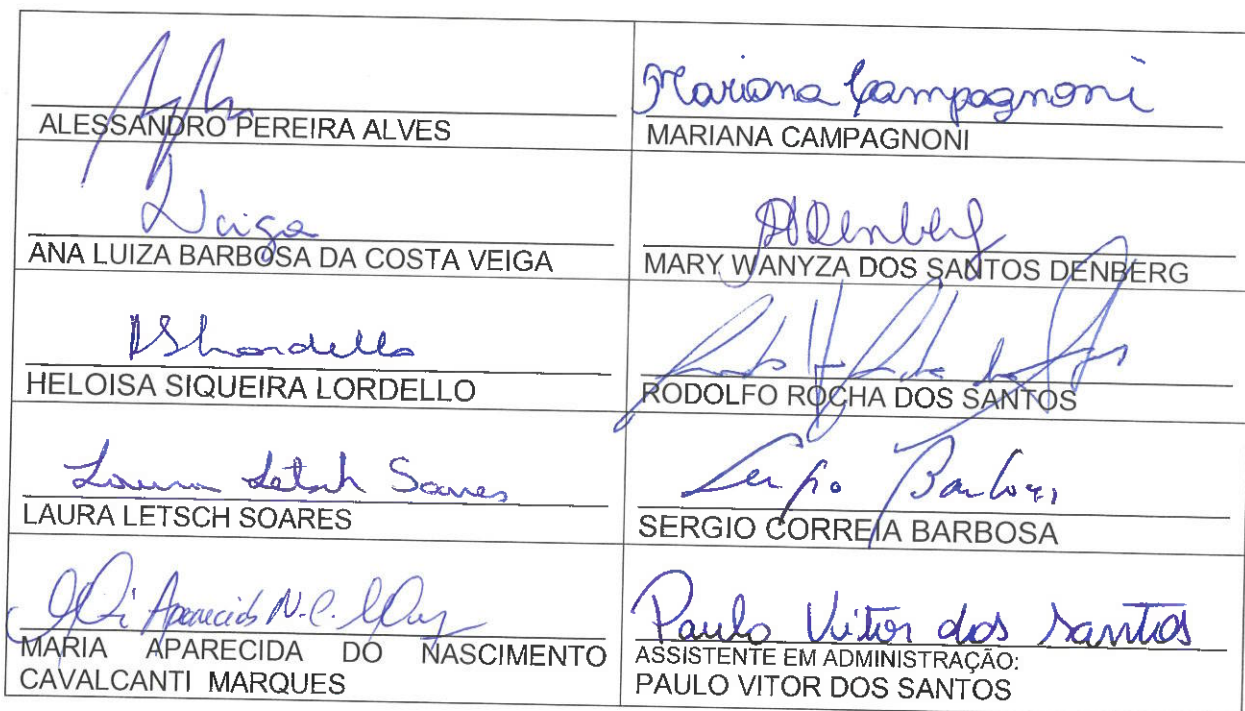 ALESSANDRO PEREIRA ALVES
Mariana Campagnoni
MARIANA CAMPAGNONI
Veiga
ANA LUIZA BARBOSA DA COSTA VEIGA
Denberg
MARY WANYZA DOS SANTOS DENBERG
HSLordello
HELOISA SIQUEIRA LORDELLO
RODOLFO ROCHA DOS SANTOS
Laura Letsch Soares
LAURA LETSCH SOARES
Sergio Barbosa
SERGIO CORREIA BARBOSA
Aparecida N.C.
MARIA APARECIDA DO NASCIMENTO
CAVALCANTI MARQUES
Paulo Vitor dos Santos
ASSISTENTE EM ADMINISTRAÇÃO:
PAULO VITOR DOS SANTOS